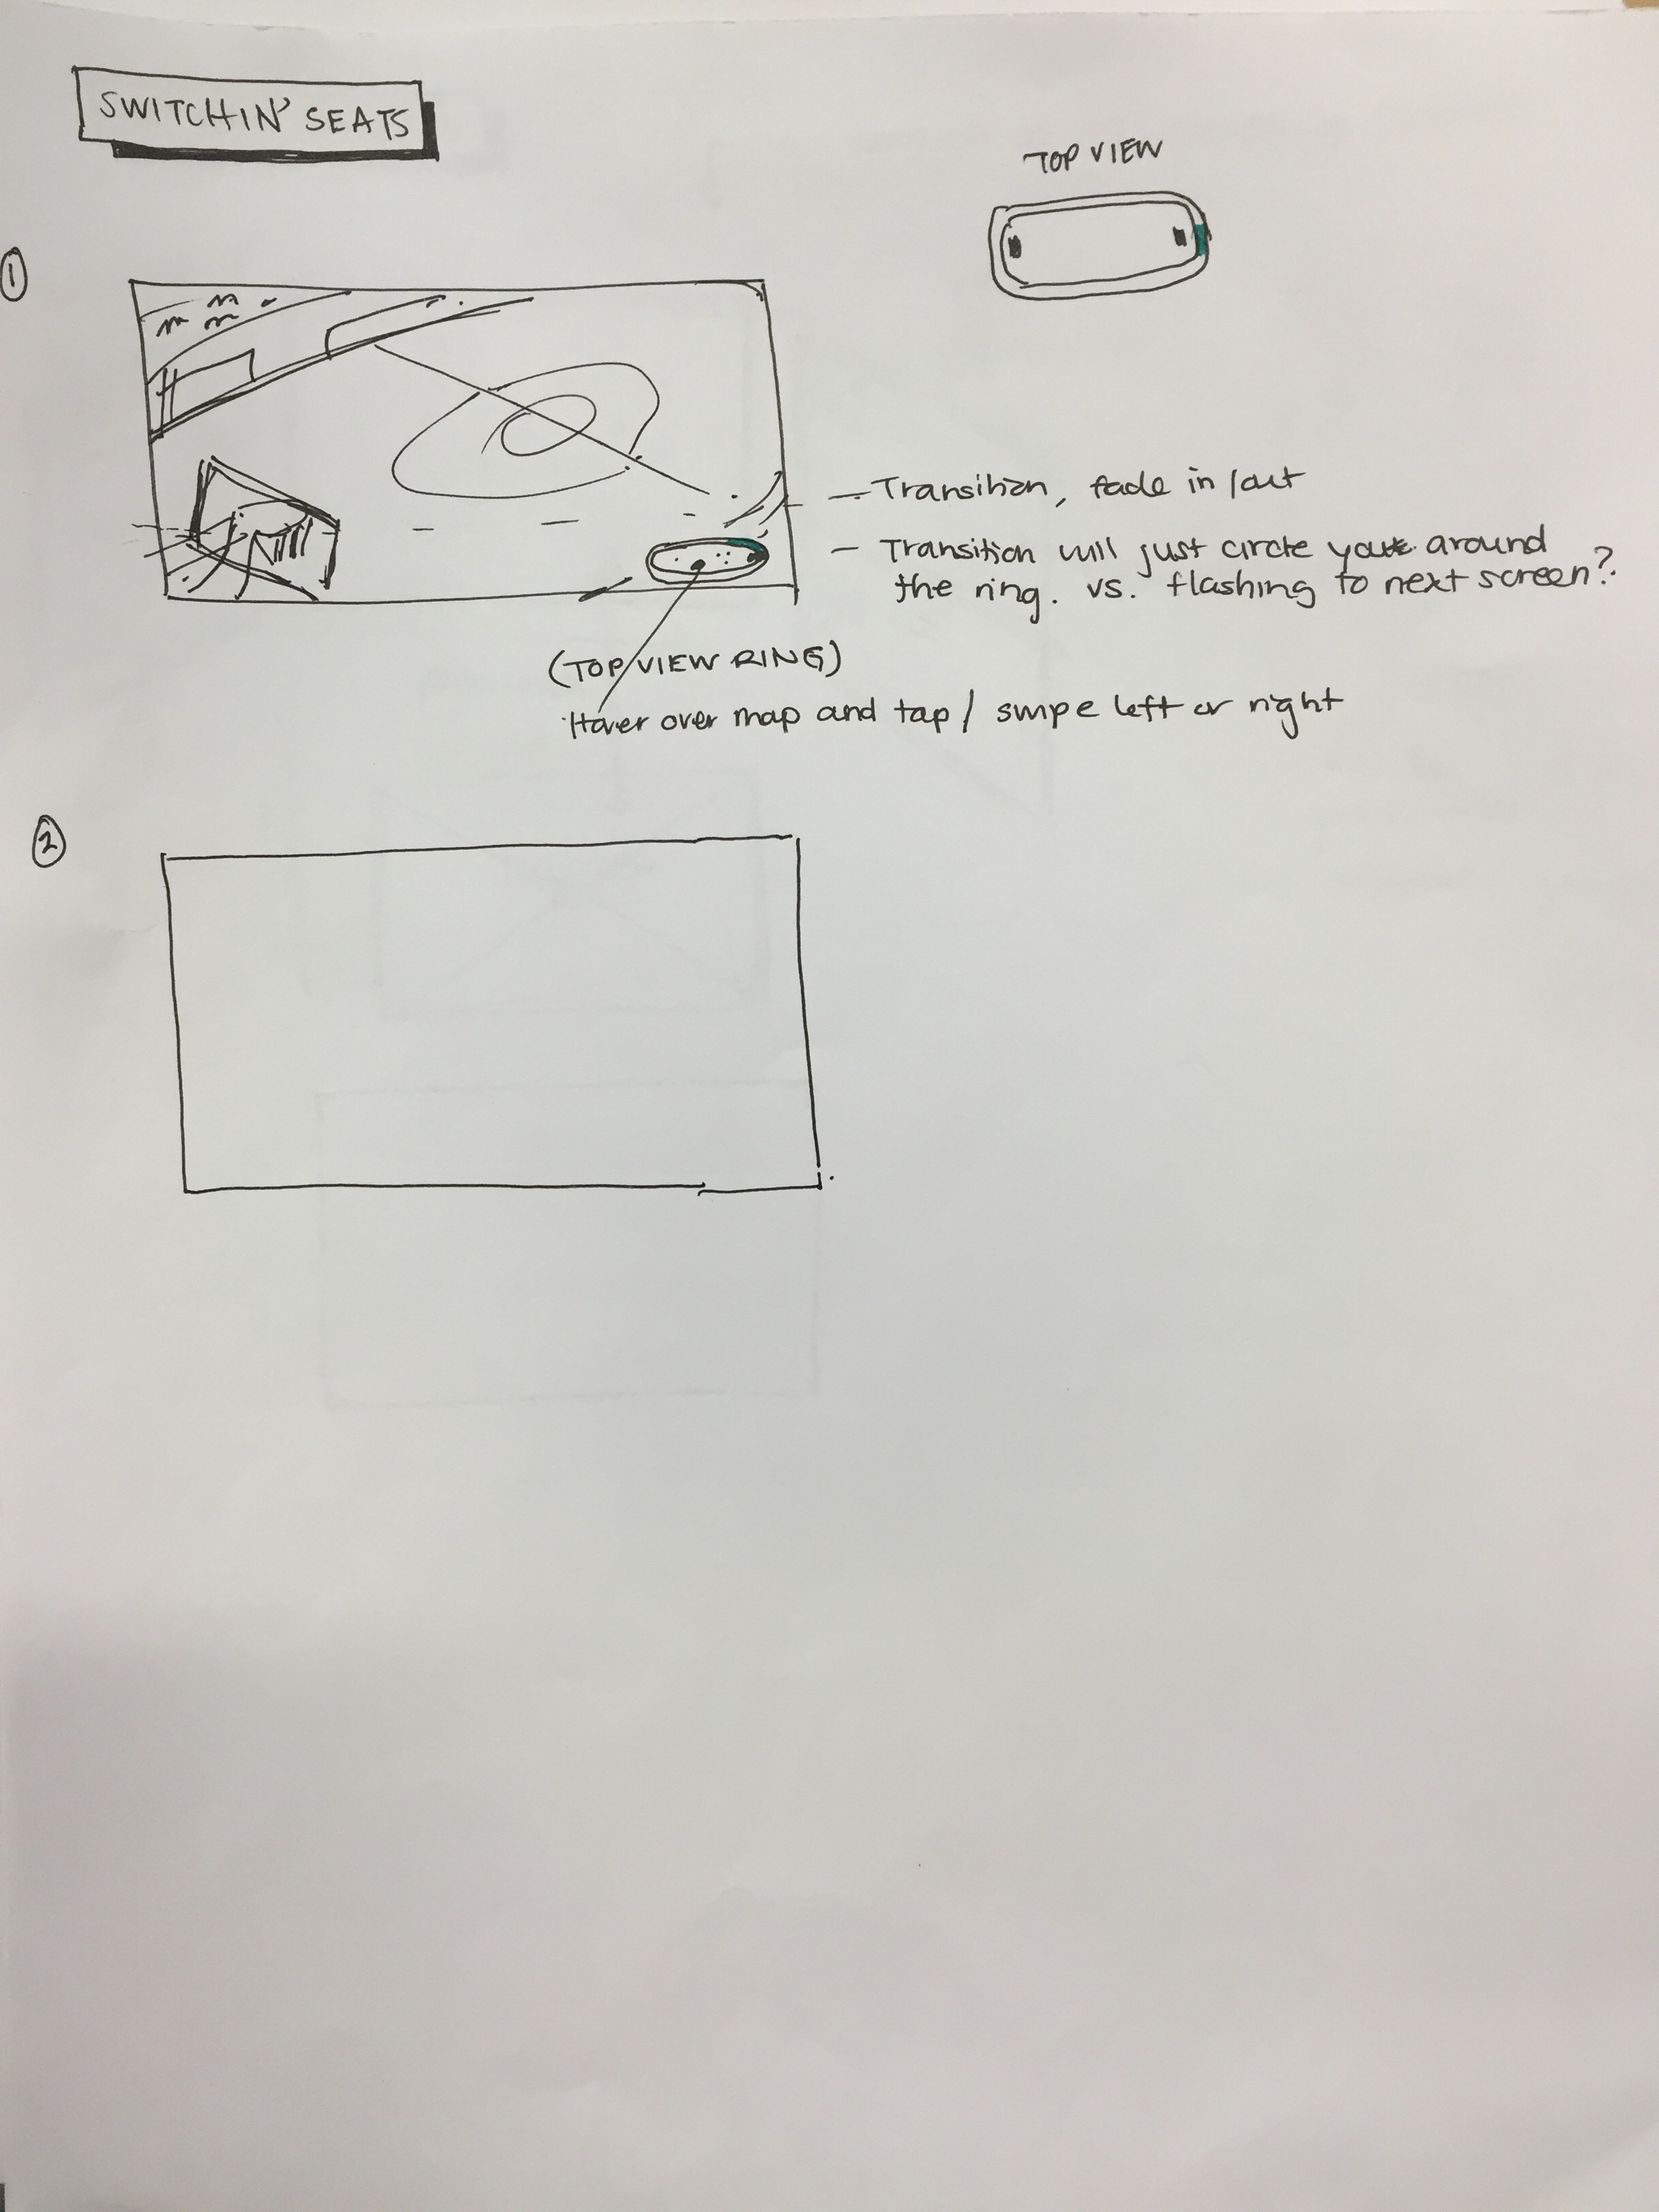 SWITCHIN' SEATS
TOP VIEW
1
— Transition, fade in/out
— Transition will just circle you around
the ring. vs. flashing to next screen?
(TOP VIEW RING)
Hover over map and tap / swipe left or right
2